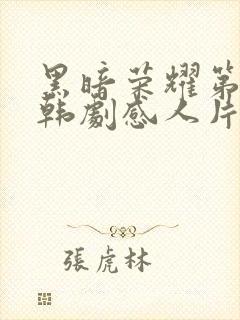 黑暗荣耀第
韩劇感人片
張虎林